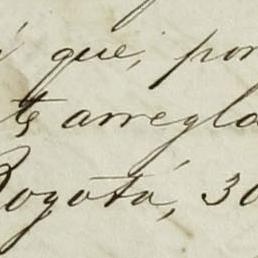 que, por
te arregla
Bogotá, 30